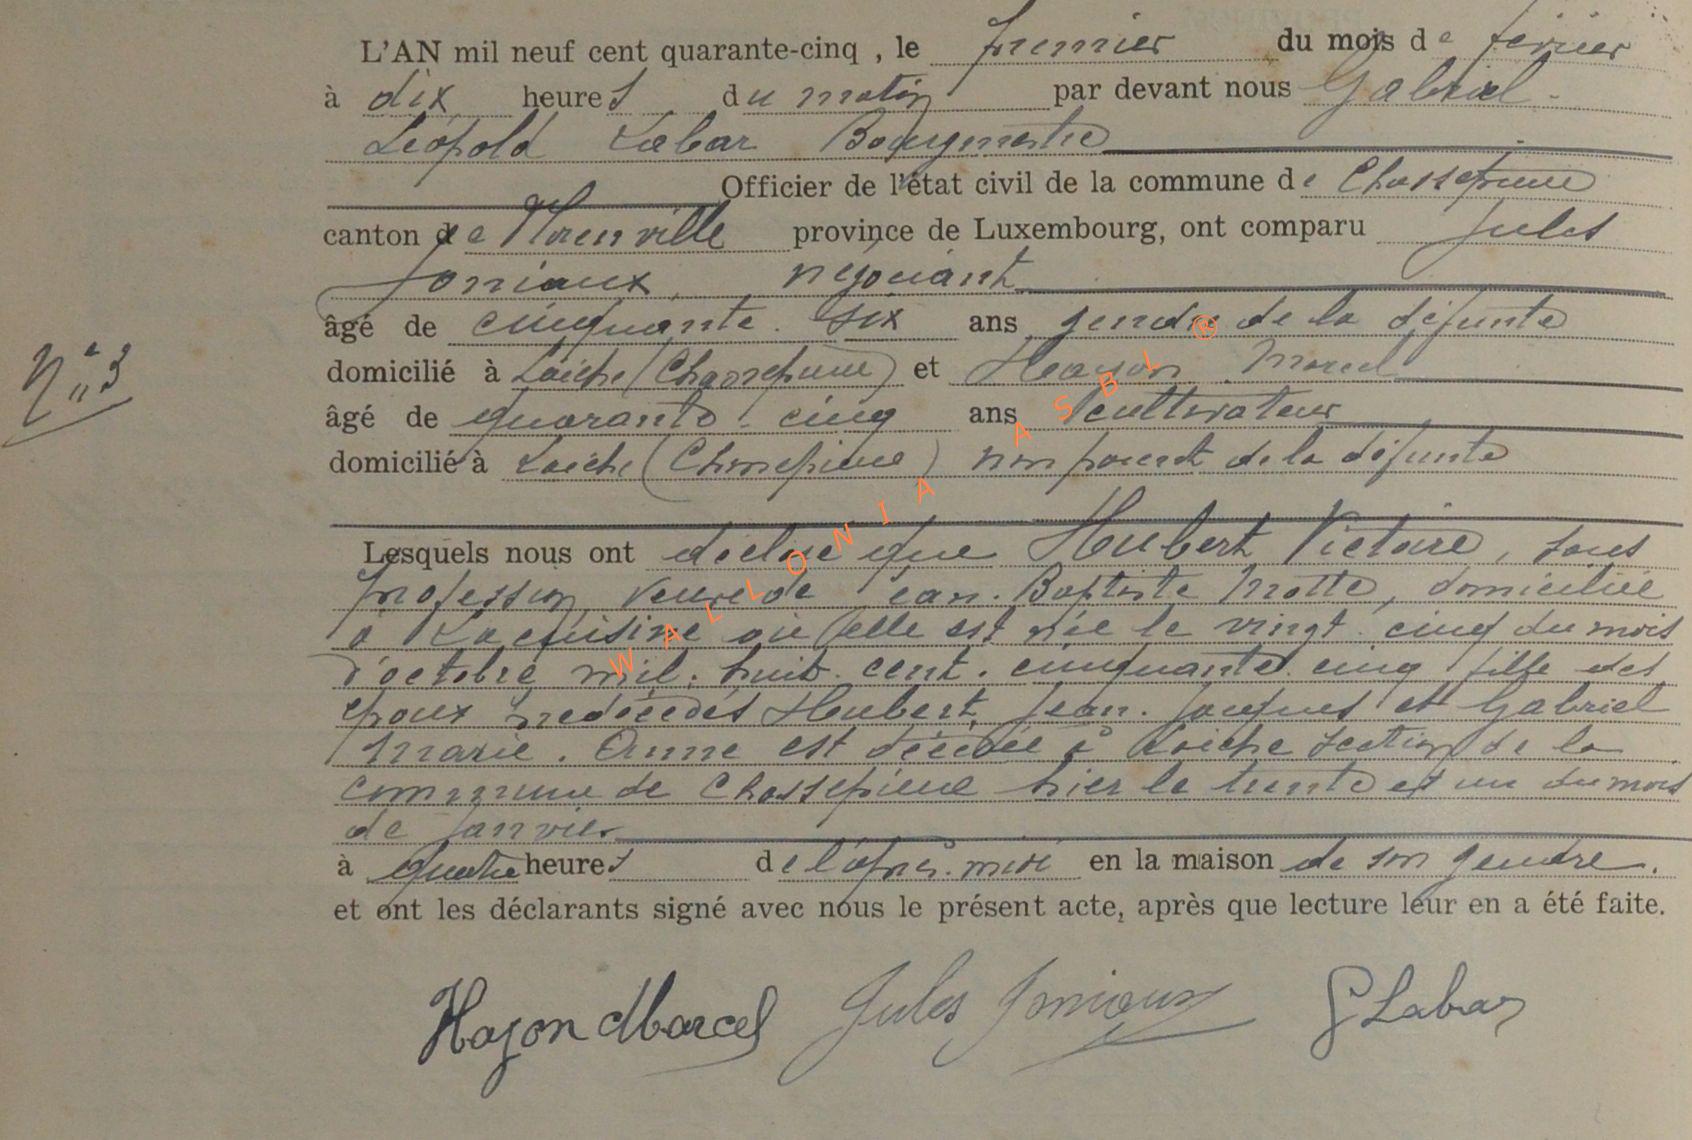 L'AN mil neuf cent quarante-cinq, le premier du mois de février
à dix heures du matin par devant nous Gabriel
Léopold Labar Bourgmestre
Officier de l'état civil de la commune de Chassepierre
canton de Florenville province de Luxembourg, ont comparu Jules
Joniaux, négociant
âgé de cinquante-six ans gendre de la défunte
domicilié à Laiche (Chassepierre) et Hayon Marcel
N° 3
âgé de quarante-cinq ans cultivateur
domicilié à Laiche (Chassepierre) non parent de la défunte
Lesquels nous ont déclaré que Hubert Victoire, sans
profession, veuve de Jean-Baptiste Motte, domiciliée
à Lacuisine où elle est née le vingt cinq du mois
d'octobre mil-huit-cent-cinquante-cinq fille des
époux prédécédés Hubert, Jean-Jacques et Gabriel
Marie-Anne est décédée à Laiche section de la
commune de Chassepierre hier le trente et un du mois
de janvier
à quatre heures de l'après-midi en la maison de son gendre.
et ont les déclarants signé avec nous le présent acte, après que lecture leur en a été faite.
Hayon Marcel Jules Joniaux G Labar
WALLONIA ASBL ®